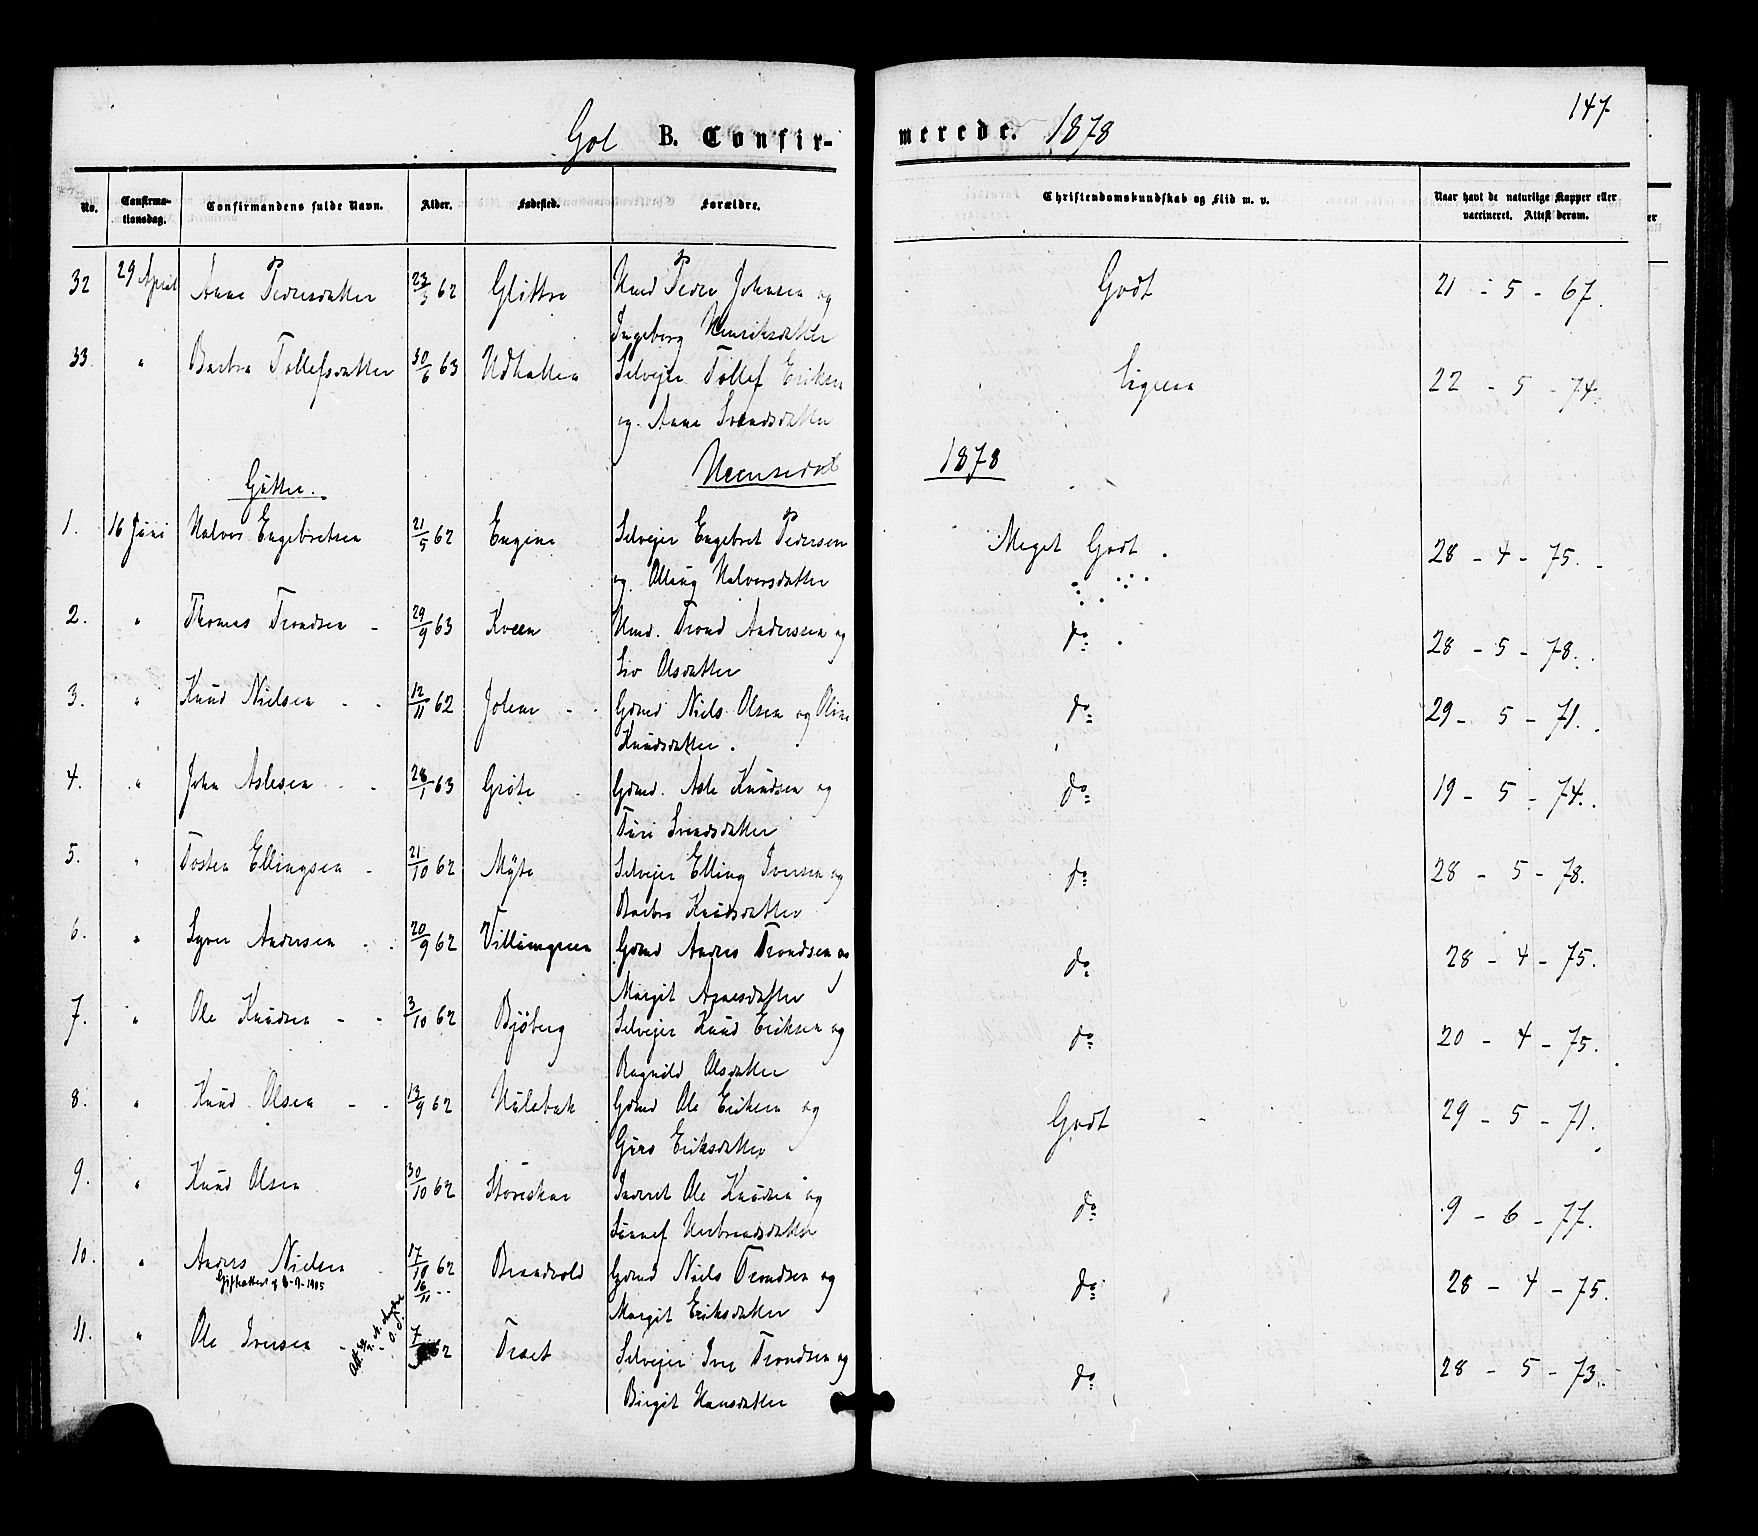 147
Gol B. Confir- merede. 1878
No. Confirma-tionsdag. Confirmandens fulde Navn. Alder. Fødested. Forældre. Christendomskundskab og Flid m. v. Naar havt de naturlige Kopper eller vaccineret. Attest derom.
32 29 April Anne Pedersdatter 23/3 62 Glittre Umd Peder Johnsen og Godt 21 - 5 - 67.
Ingeborg Henriksdatter
33 " Barbra Tollefsdatter 30/6 63 Ødhallen Selvejer Tollef Eriksen Ligesaa 22 - 5 - 74.
og Anne Svendsdatter
Gutter. Hemsedal 1878
1. 16 Juni Halvor Engebretsen 21/5 62 Engene Selvejer Engebret Pedersen Meget Godt. 28 - 4 - 75.
og Olling Halvorsdatter
2. " Thomas Trondsen 29/9 63 Kveen Hmd. Trond Andersen og do 28 - 5 - 78.
Liv Olsdatter
3. " Knud Nielsen 12/11 62 Jolene Gdmd Niels Olsen og Oline do 29 - 5 - 71.
Knudsdatter.
4. " John Aslesen 28/1 63 Grøte Gdmd. Asle Knudsen og do 19 - 5 - 74.
Turi Svendsdatter
5. " Tosten Ellingsen 21/10 62 Myte Selvejer Elling Iversen og do 28 - 5 - 78.
Barbra Knudsdatter
6. " Syver Andersen 20/9 62 Villumgreen Gdmd Anders Trondsen og do 28 - 4 - 75.
Margit Arnesdatter
7. " Ole Knudsen 3/10 62 Bjøberg Selvejer Knud Eriksen og do 20 - 4 - 75.
Ragnild Olsdatter
8. " Knud Olsen 13/9 62 Hulebak Gdmd Ole Eriksen og Godt 29 - 5 - 71.
Guro Eriksdatter
9. " Knud Olsen 30/10 62 Storeskar Inderst Ole Knudsen og do 9 - 6 - 77.
Sünnef Herbrandsdatter
10. " Anders Nielsen 17/10 62 Brandvold Gdmd Niels Trondsen og do 28 - 4 - 75.
16/11
Margit Eriksdatter
11. " Ole Iversen 7/ 62 Traet Selvejer Iver Trondsen og do 28 - 5 - 73.
Birgit Hansdatter